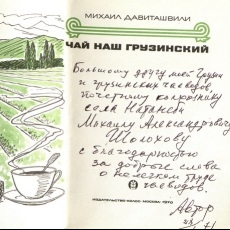 МИХАИЛ ДАВИТАШВИЛИ
ЧАЙ НАШ ГРУЗИНСКИЙ
Большому другу моей Грузии
и грузинских чаеводов
Почетному колхознику
села Натанеби
Михаилу Александровичу
Шолохову
с благодарностью
за доброе слово
о нелегком труде
чаеводов.
ИЗДАТЕЛЬСТВО «КОЛОС» МОСКВА—1970
Автор
71